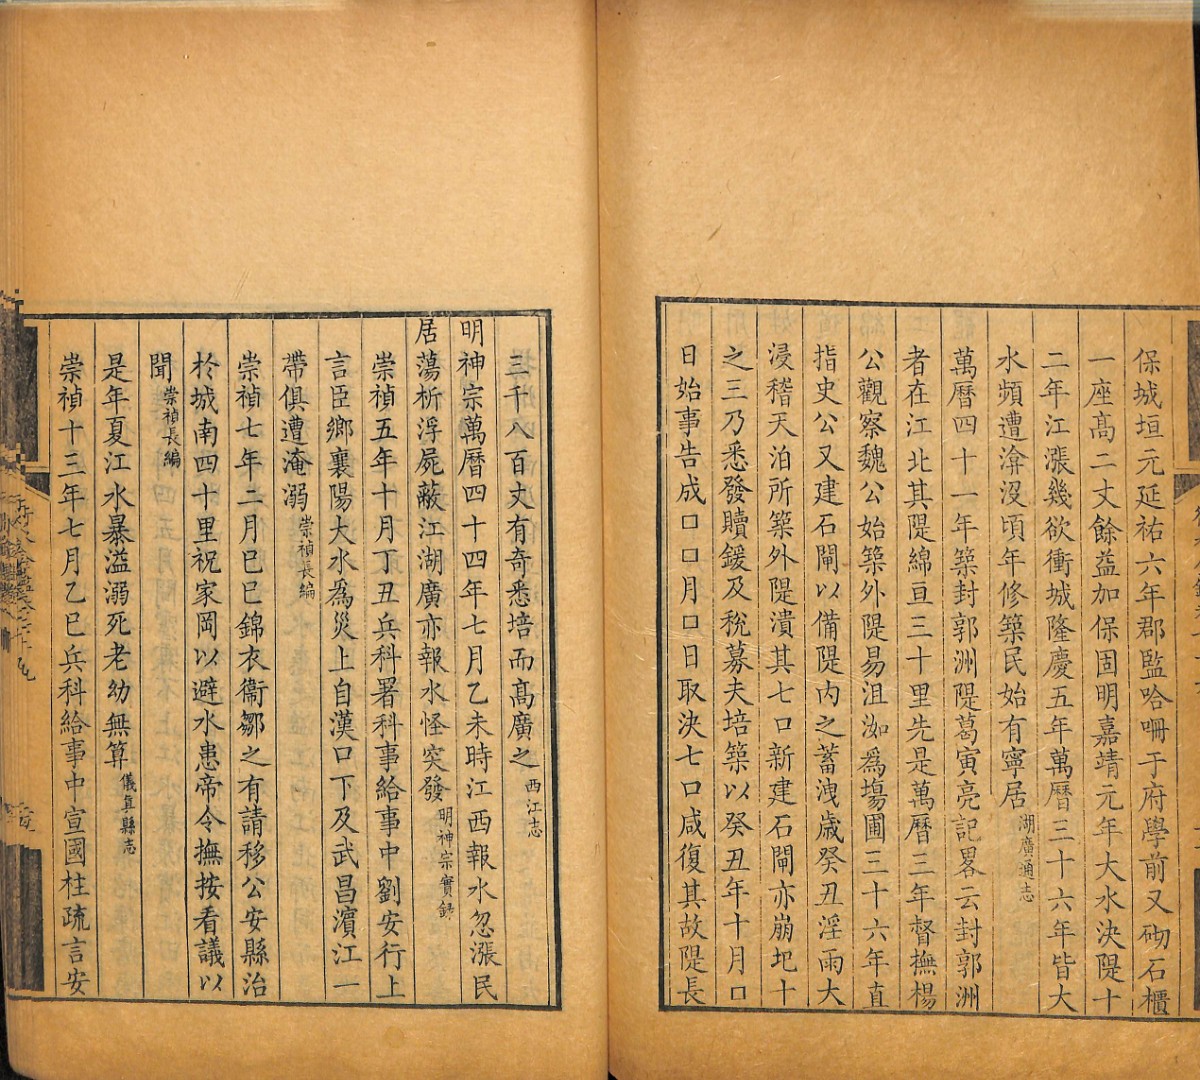 保城垣元延祐六年郡監哈㖇于府學前又砌石櫃
一座高二丈餘益加保固明嘉靖元年大水決隄十
二年江漲幾欲衝城隆慶五年萬曆三十六年皆大
水頻遭渰沒頃年修築民始有寧居湖廣通志
萬曆四十一年築封郭洲隄葛寅亮記畧云封郭洲
者在江北其隄綿亘三十里先是萬曆三年督撫楊
公觀察魏公始築外隄易沮洳爲塲圃三十六年直
指史公又建石閘以備隄内之蓄洩歲癸丑淫雨大
浸稽天泊所築外隄潰其七口新建石閘亦崩圯十
之三乃悉發贖鍰及稅募夫培築以癸丑年十月口
日始事告成口口月口日取決七口咸復其故隄長
三千八百丈有奇悉培而高廣之西江志
明神宗萬曆四十四年七月乙未時江西報水忽漲民
居蕩析浮屍蔽江湖廣亦報水怪突發明神宗實錄
崇禎五年十月丁丑兵科署科事給事中劉安行上
言臣鄉襄陽大水爲災上自漢口下及武昌濵江一
帶俱遭淹溺崇禎長編
崇禎七年二月巳巳錦衣衞鄒之有請移公安縣治
於城南四十里祝家岡以避水患帝令撫按看議以
聞崇禎長編
是年夏江水暴溢溺死老幼無算儀真縣志
崇禎十三年七月乙巳兵科給事中宣國柱疏言安